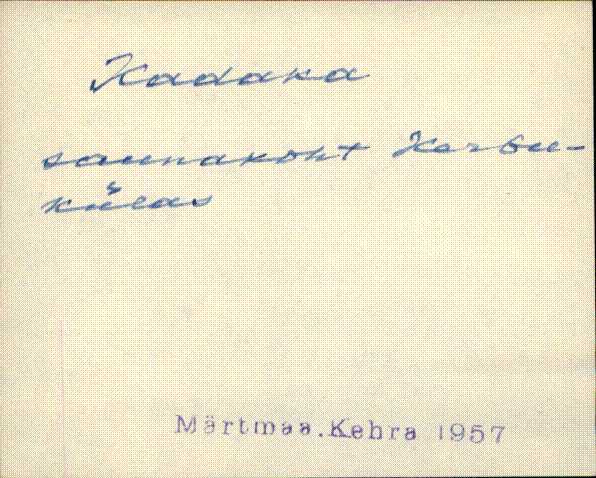 Kadaka
saunakoht Kerbu-
külas
Märtmaa.Kehra 1957